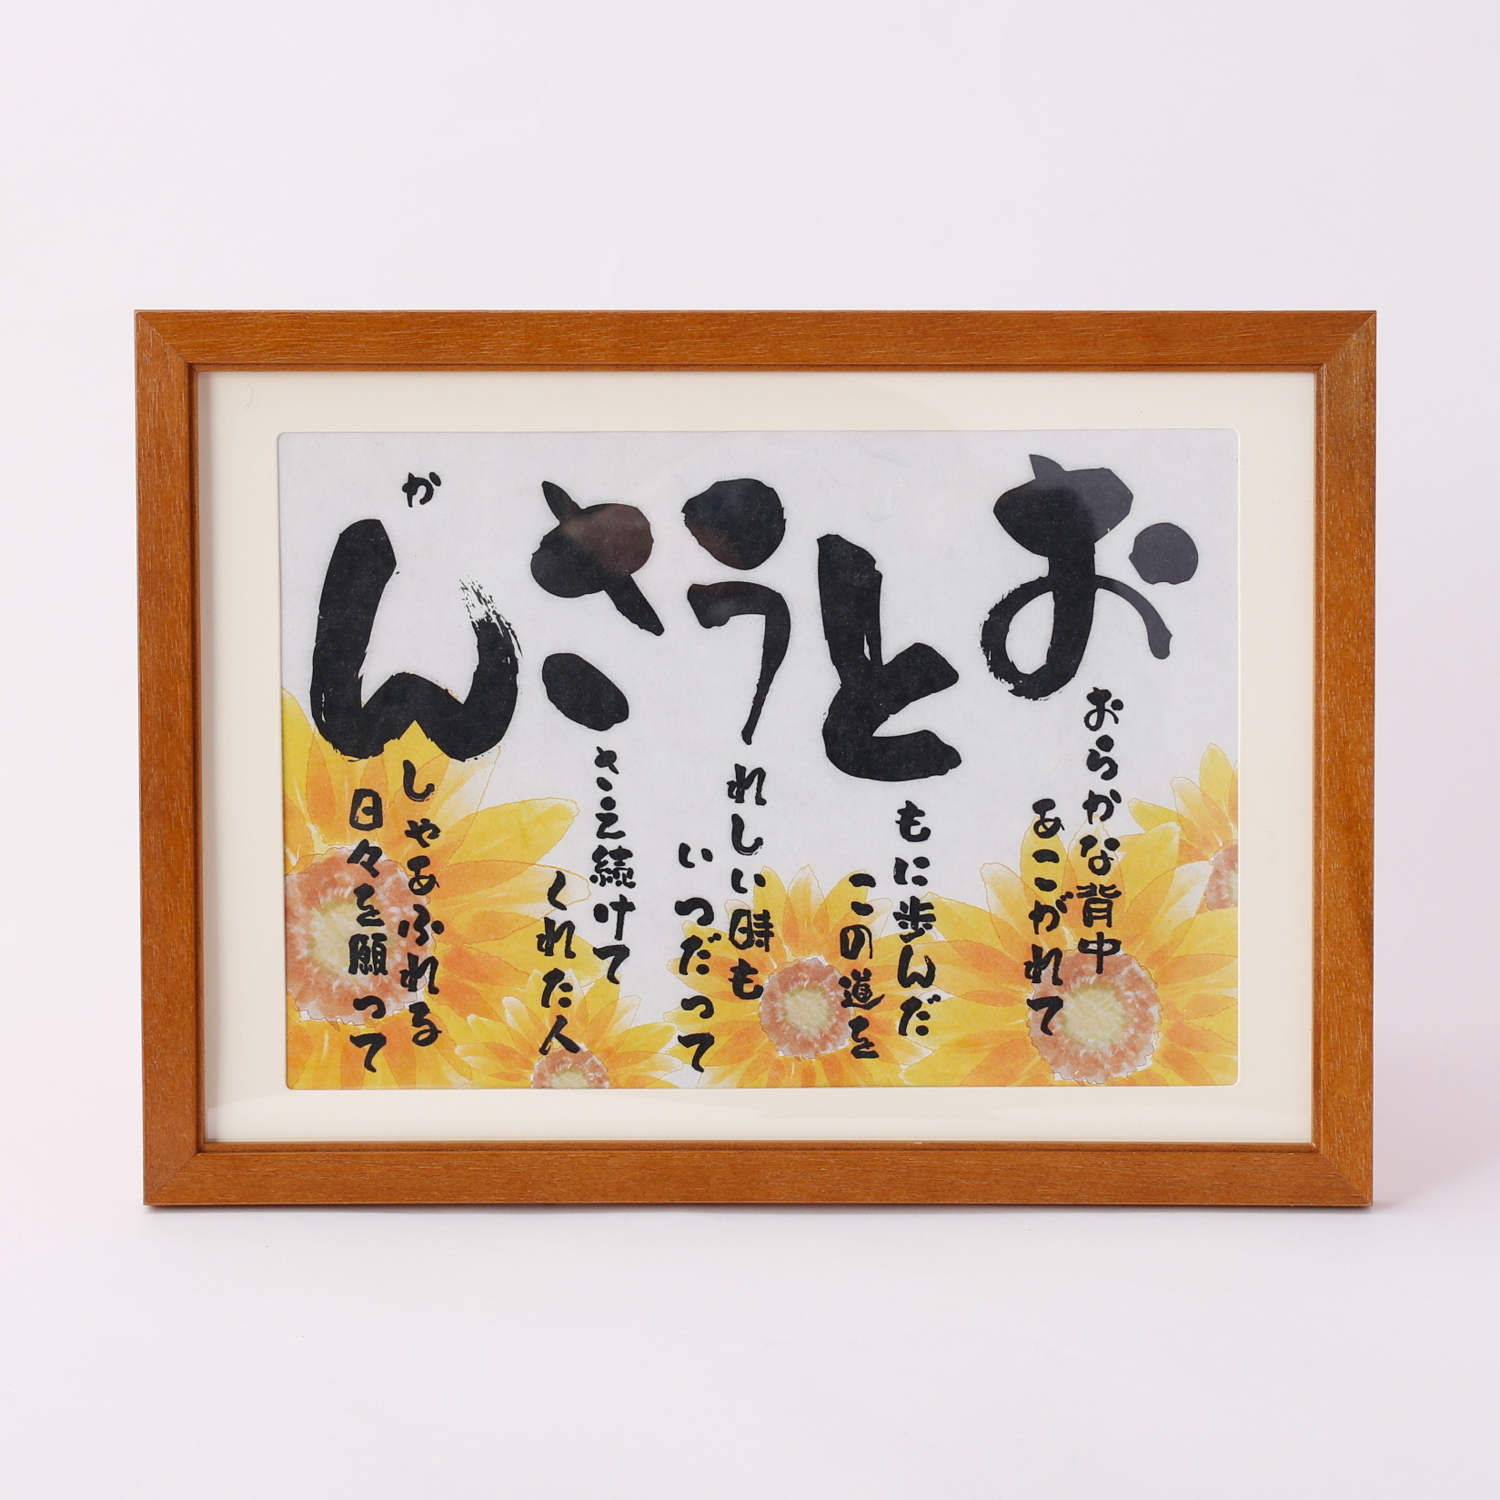 おおらかな背中
あこがれて
ともに歩んだ
この道を
うれしい時も
いつだって
ささえ続けて
くれた人
かんしゃあふれる
日々を願って